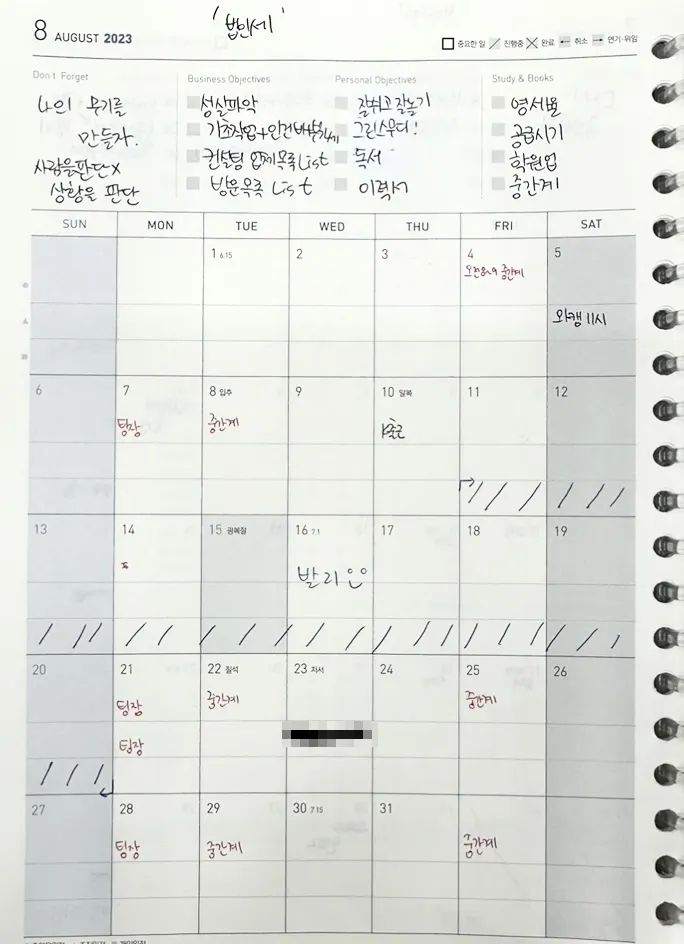 '법인세'
8 AUGUST 2023
중요한 일 진행중 완료 취소 연기·위임
Don't Forget
나의 무기를
만들자.
사람을판단x
상황을 판단
Business Objectives
성실파악
기초작업+인건배부
컨설팅 업체목록 List
방문목록 List
Personal Objectives
잘쉬고잘놀기
그린스무디!
독서
이력서
Study & Books
영세율
공급시기
학원업
중간계
SUN MON TUE WED THU FRI SAT
1 6.15 2 3 4 5
중간계
와캠 11시
6 7 8 입추 9 10 말복 11 12
팀장 중간계
13 14 15 광복절 16 7.1 17 18 19
발리
20 21 22 칠석 23 처서 24 25 26
팀장 중간계 중간계
팀장
27 28 29 30 7.15 31
팀장 중간계 중간계